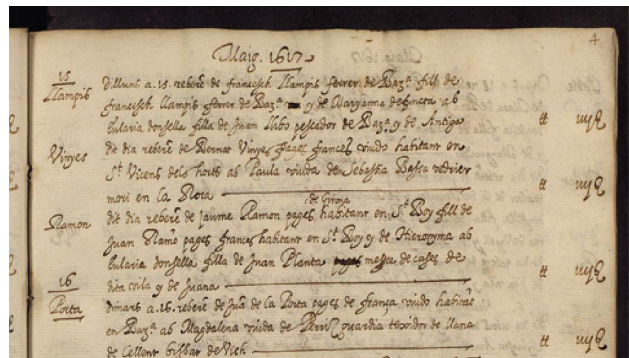 4
Maig. 1617
15
Llampis
dilluns a 15. rebere de francesch Llampis ferrer de Bar.ª fill de
francesch Llampis ferrer de Bar.ª y de Maryanna defuncta ab
Eularia donsella filla de Juan Llibo pescador de Bar.ª y de Antiga
Vinyes
dit dia rebere de Bernat Vinyes pages frances viudo habitant en
S.t Vicens dels horts ab Paula viuda de Sebastia Bassa vedrier
mori en la
de Girona
Ramon
dit dia rebere de Jaume Ramon pages habitant en S.t Boy fill de
Juan Ramo pages frances habitant en S.t Boy y de Hieronyma ab
Eularia donsella filla de Juan Planta mestre de cases de
dita y de Juana
16
Porta
dimars a 16. rebere de Jua de la Porta pages de frança viudo habitāt
en Bar.ª ab Magdalena viuda de guardia texidor de llana
de bisbat de Vich